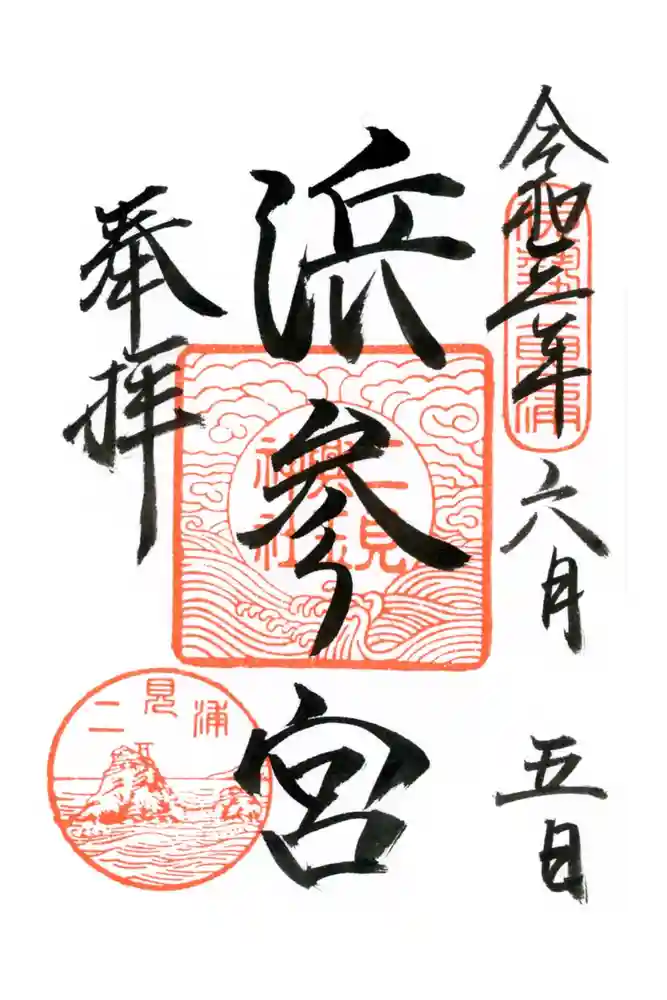 令和三年六月五日
伊勢二見浦
浜参宮
二見
興玉
神社
奉拝
二見浦